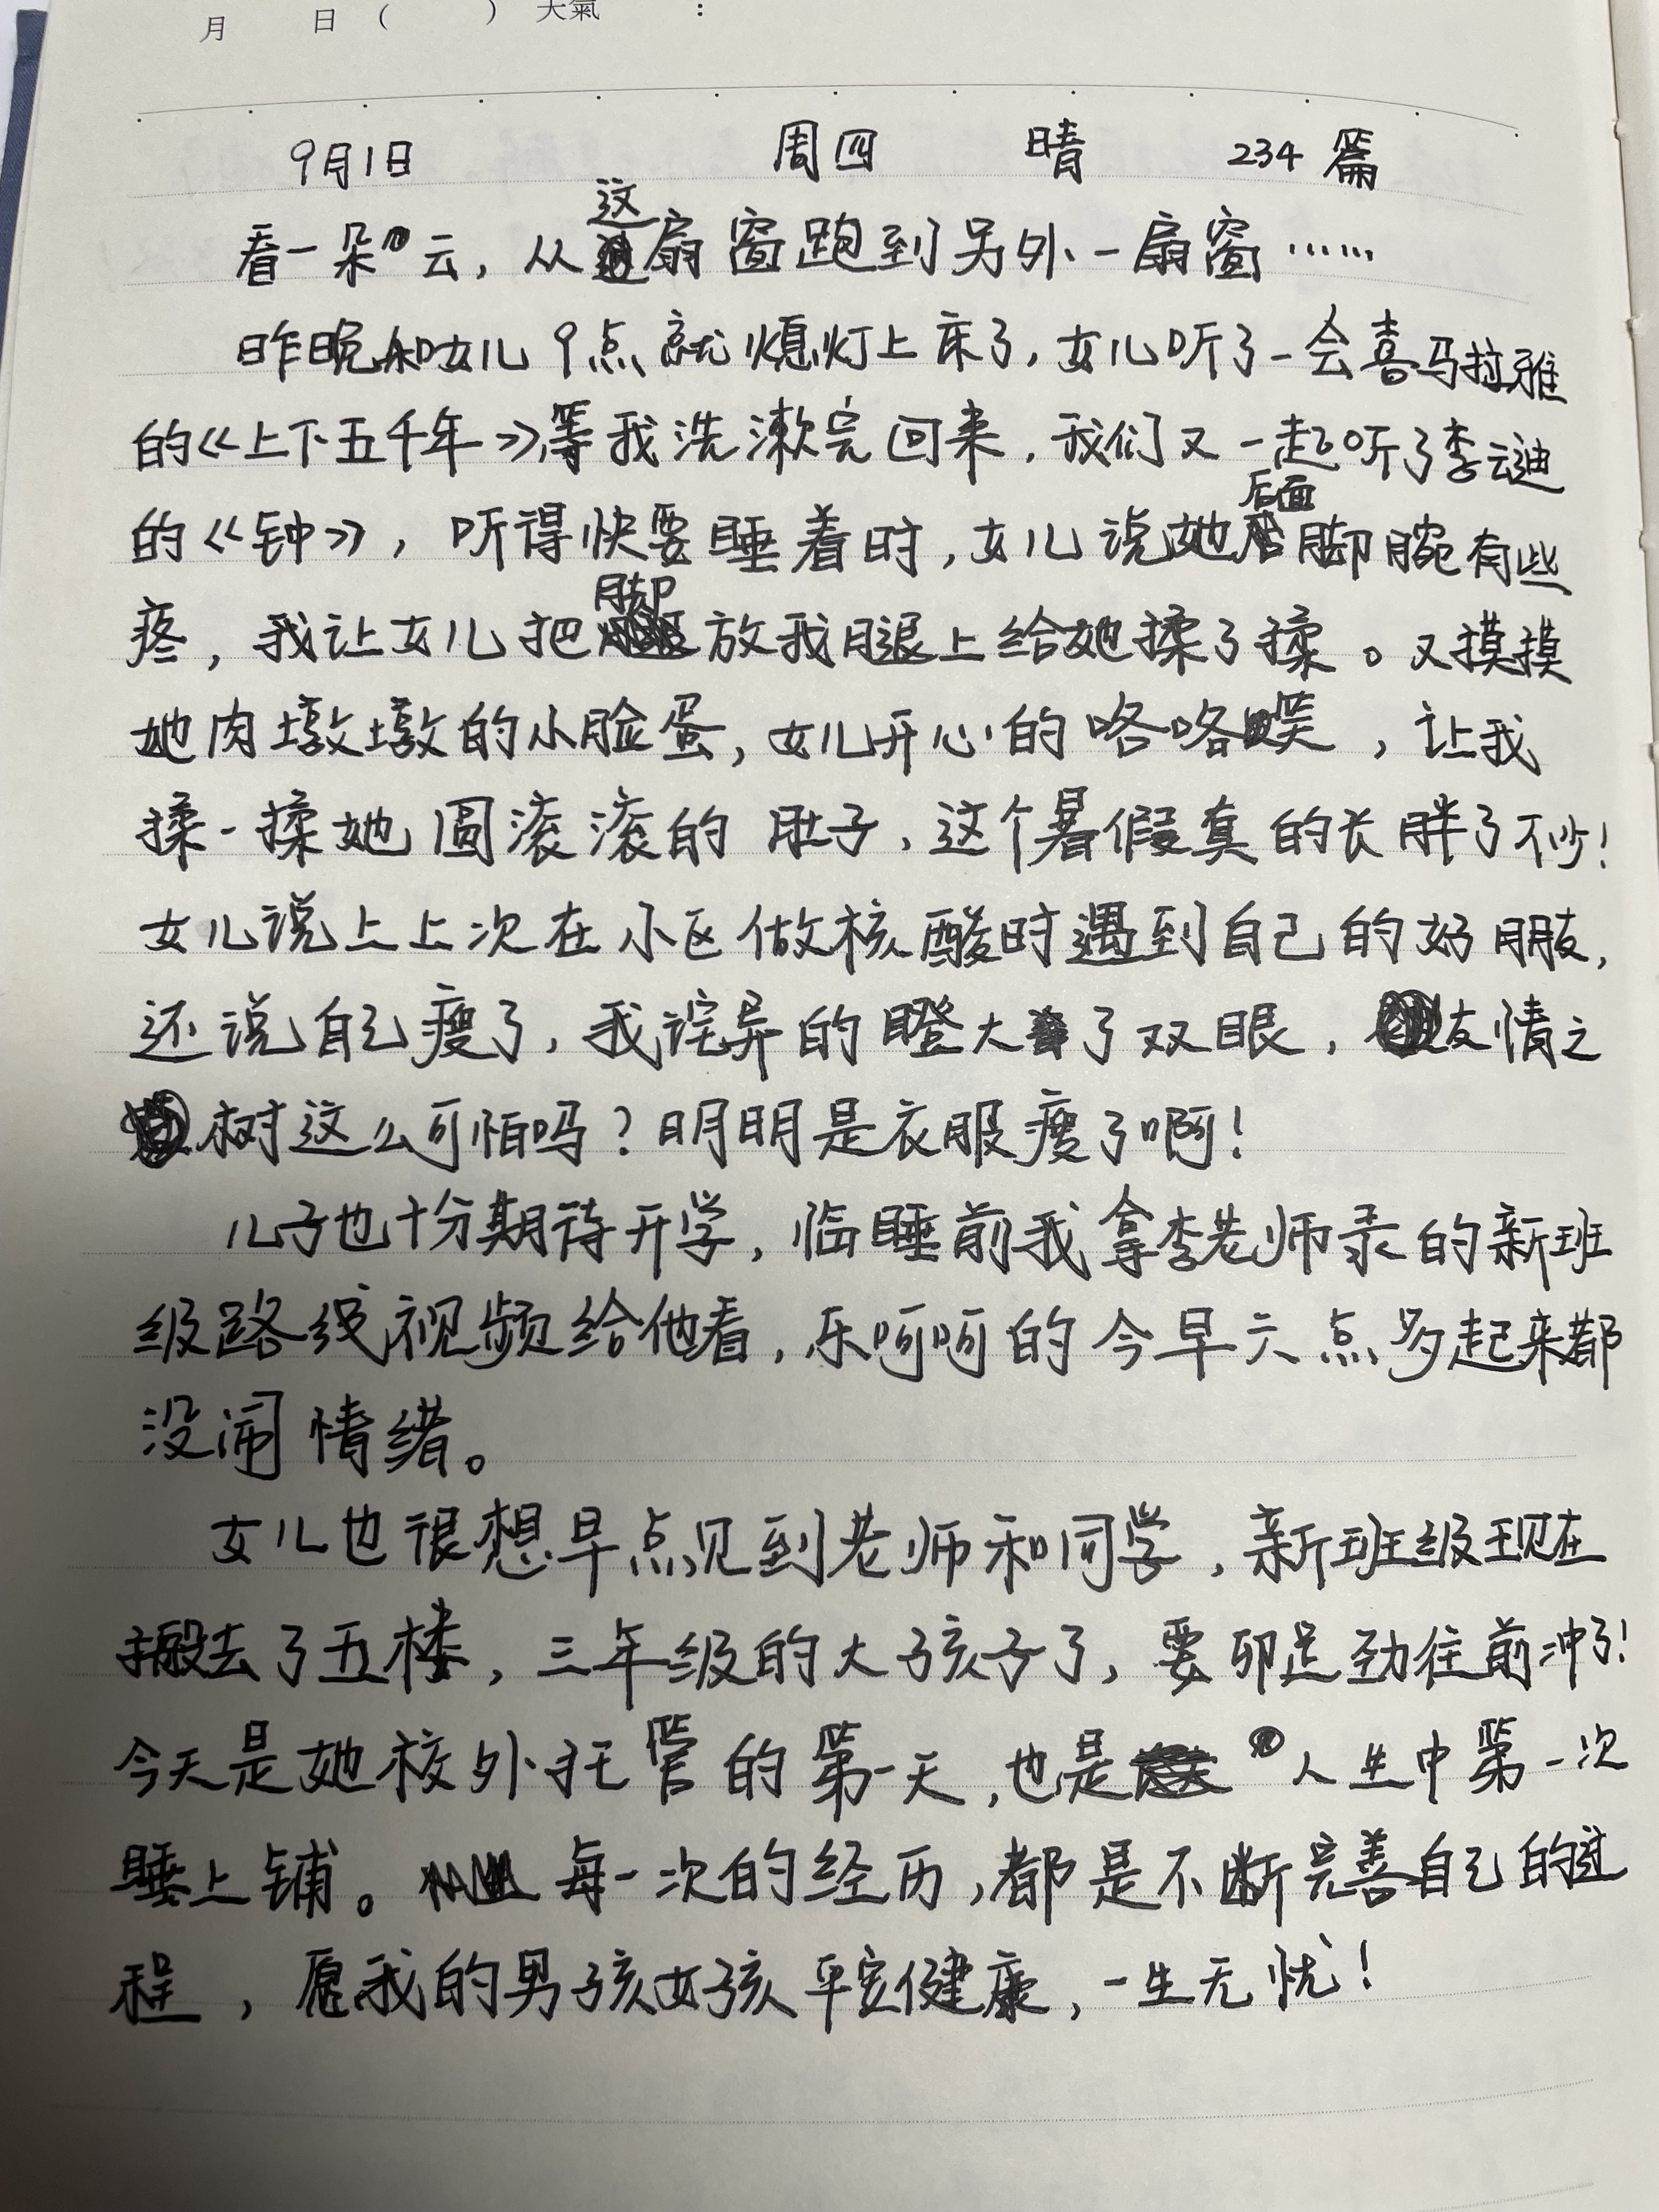 月 日（ ）天氣 ：
9月1日 周四 晴 234篇
看一朵云，从这扇窗跑到另外一扇窗……
昨晚和女儿9点就熄灯上床了，女儿听了一会喜马拉雅
的《上下五千年》，等我洗漱完回来，我们又一起听了李云迪
的《钟》，听得快要睡着时，女儿说她后面脚腕有些
疼，我让女儿把脚放我腿上给她揉了揉。又摸摸
她肉墩墩的小脸蛋，女儿开心的咯咯笑，让我
揉一揉她圆滚滚的肚子，这个暑假真的长胖了不少！
女儿说上上次在小区做核酸时遇到自己的好朋友，
还说自己瘦了，我诧异的瞪大了双眼，友情之
树这么可怕吗？明明是衣服瘦了啊！
儿子也十分期待开学，临睡前我拿李老师录的新班
级路线视频给他看，乐呵呵的今早六点多起来都
没闹情绪。
女儿也很想早点见到老师和同学，新班级现在
搬去了五楼，三年级的大孩子了，要卯足劲往前冲了！
今天是她校外托管的第一天，也是人生中第一次
睡上铺。每一次的经历，都是不断完善自己的过
程，愿我的男孩女孩平安健康，一生无忧！